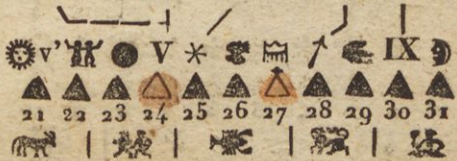 V' V IX
21 22 23 24 25 26 27 28 29 30 31